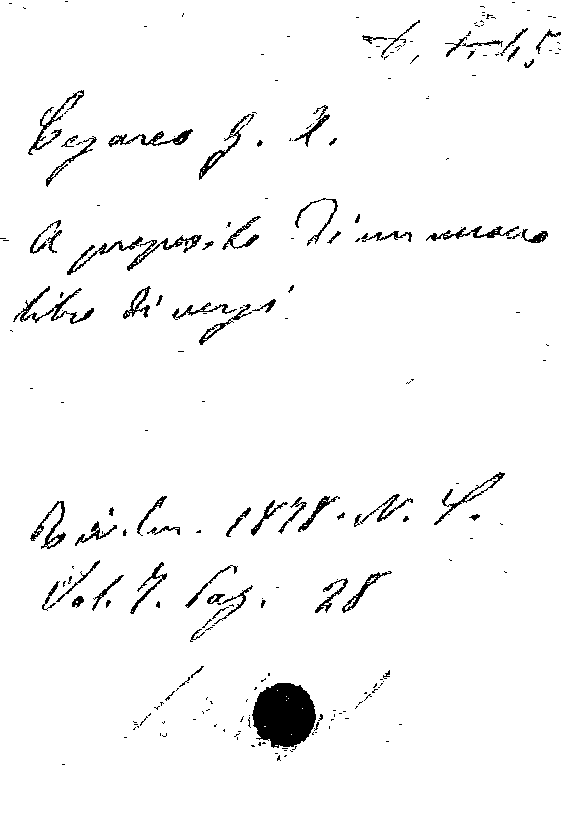 Cesareo G. A.
A proposito di un nuovo
libro di versi
Riv. Eur. 1878. N. S.
Vol. 7. Pag. 28